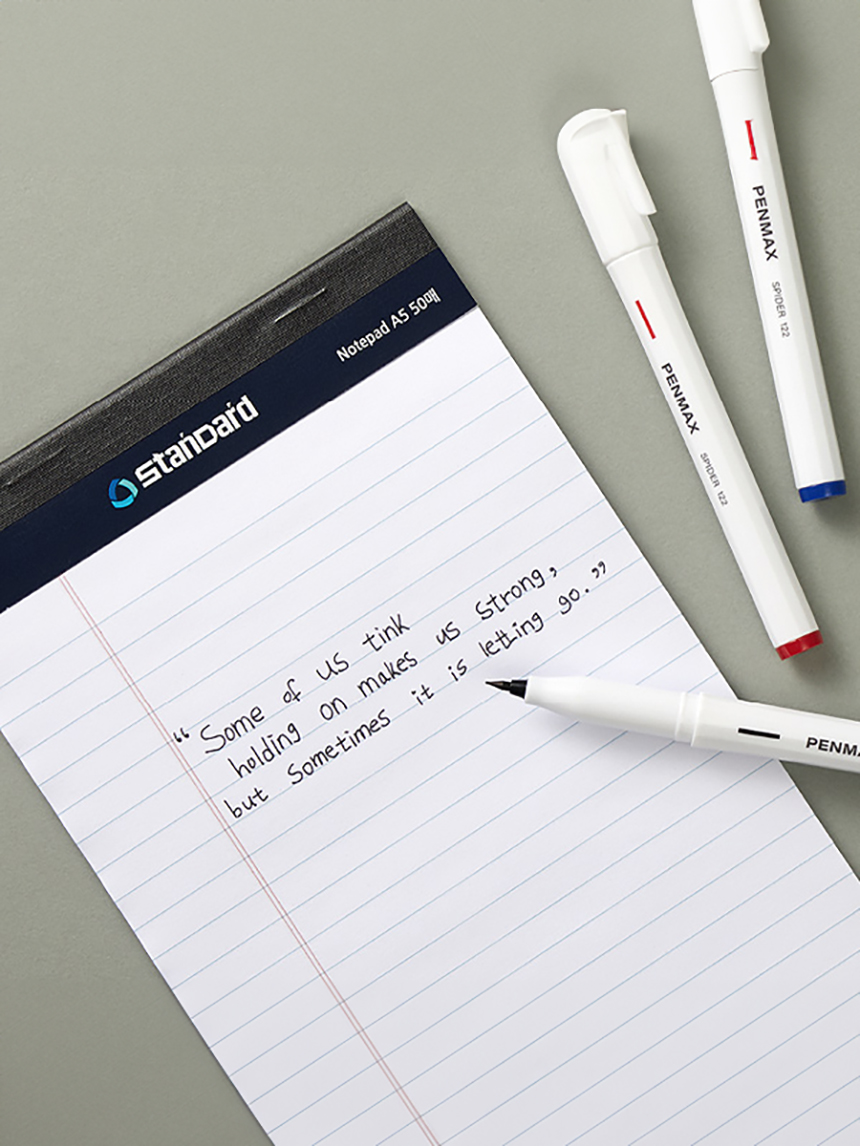 Notepad A5 50매
standard
“Some of us tink
holding on makes us strong,
but sometimes it is letting go.”
PENMAX SPIDER 122
PENMAX SPIDER 122
PENMA